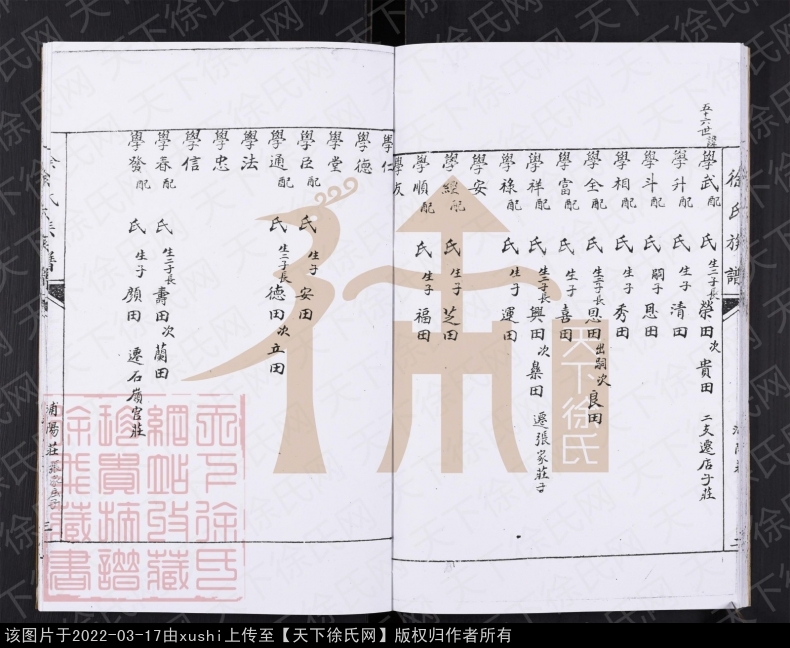 徐氏族譜
五十六世諱
學武配 氏 生二子長 榮田 次 貴田 二支遷店子莊
學升配 氏 生子 清田
學斗配 氏 嗣子 恩田
學相配 氏 生子 秀田
學全配 氏 生二子長 恩田 出嗣 次 良田
學富配 氏 生子 喜田
學祥配 氏 生二子長 興田 次 田 遷張家莊子
學祿配 氏 生子 運田
學安
學經配 氏 生子 芝田
學順配 氏 生子 福田
學友
二
學仁
學德
學堂
學臣配 氏 生子 安田
學通配 氏 生二子長 德田 次 立田
學法
學忠
學信
學春配 氏 生二子長 壽田 次 蘭田
學發配 氏 生子 田 遷石嶺官莊
徐氏族譜
浦陽莊
三
天下徐氏
天下徐氏
網站收藏
珍貴族譜
徐飛藏書
天下徐氏网
该图片于2022-03-17由xushi上传至【天下徐氏网】版权归作者所有